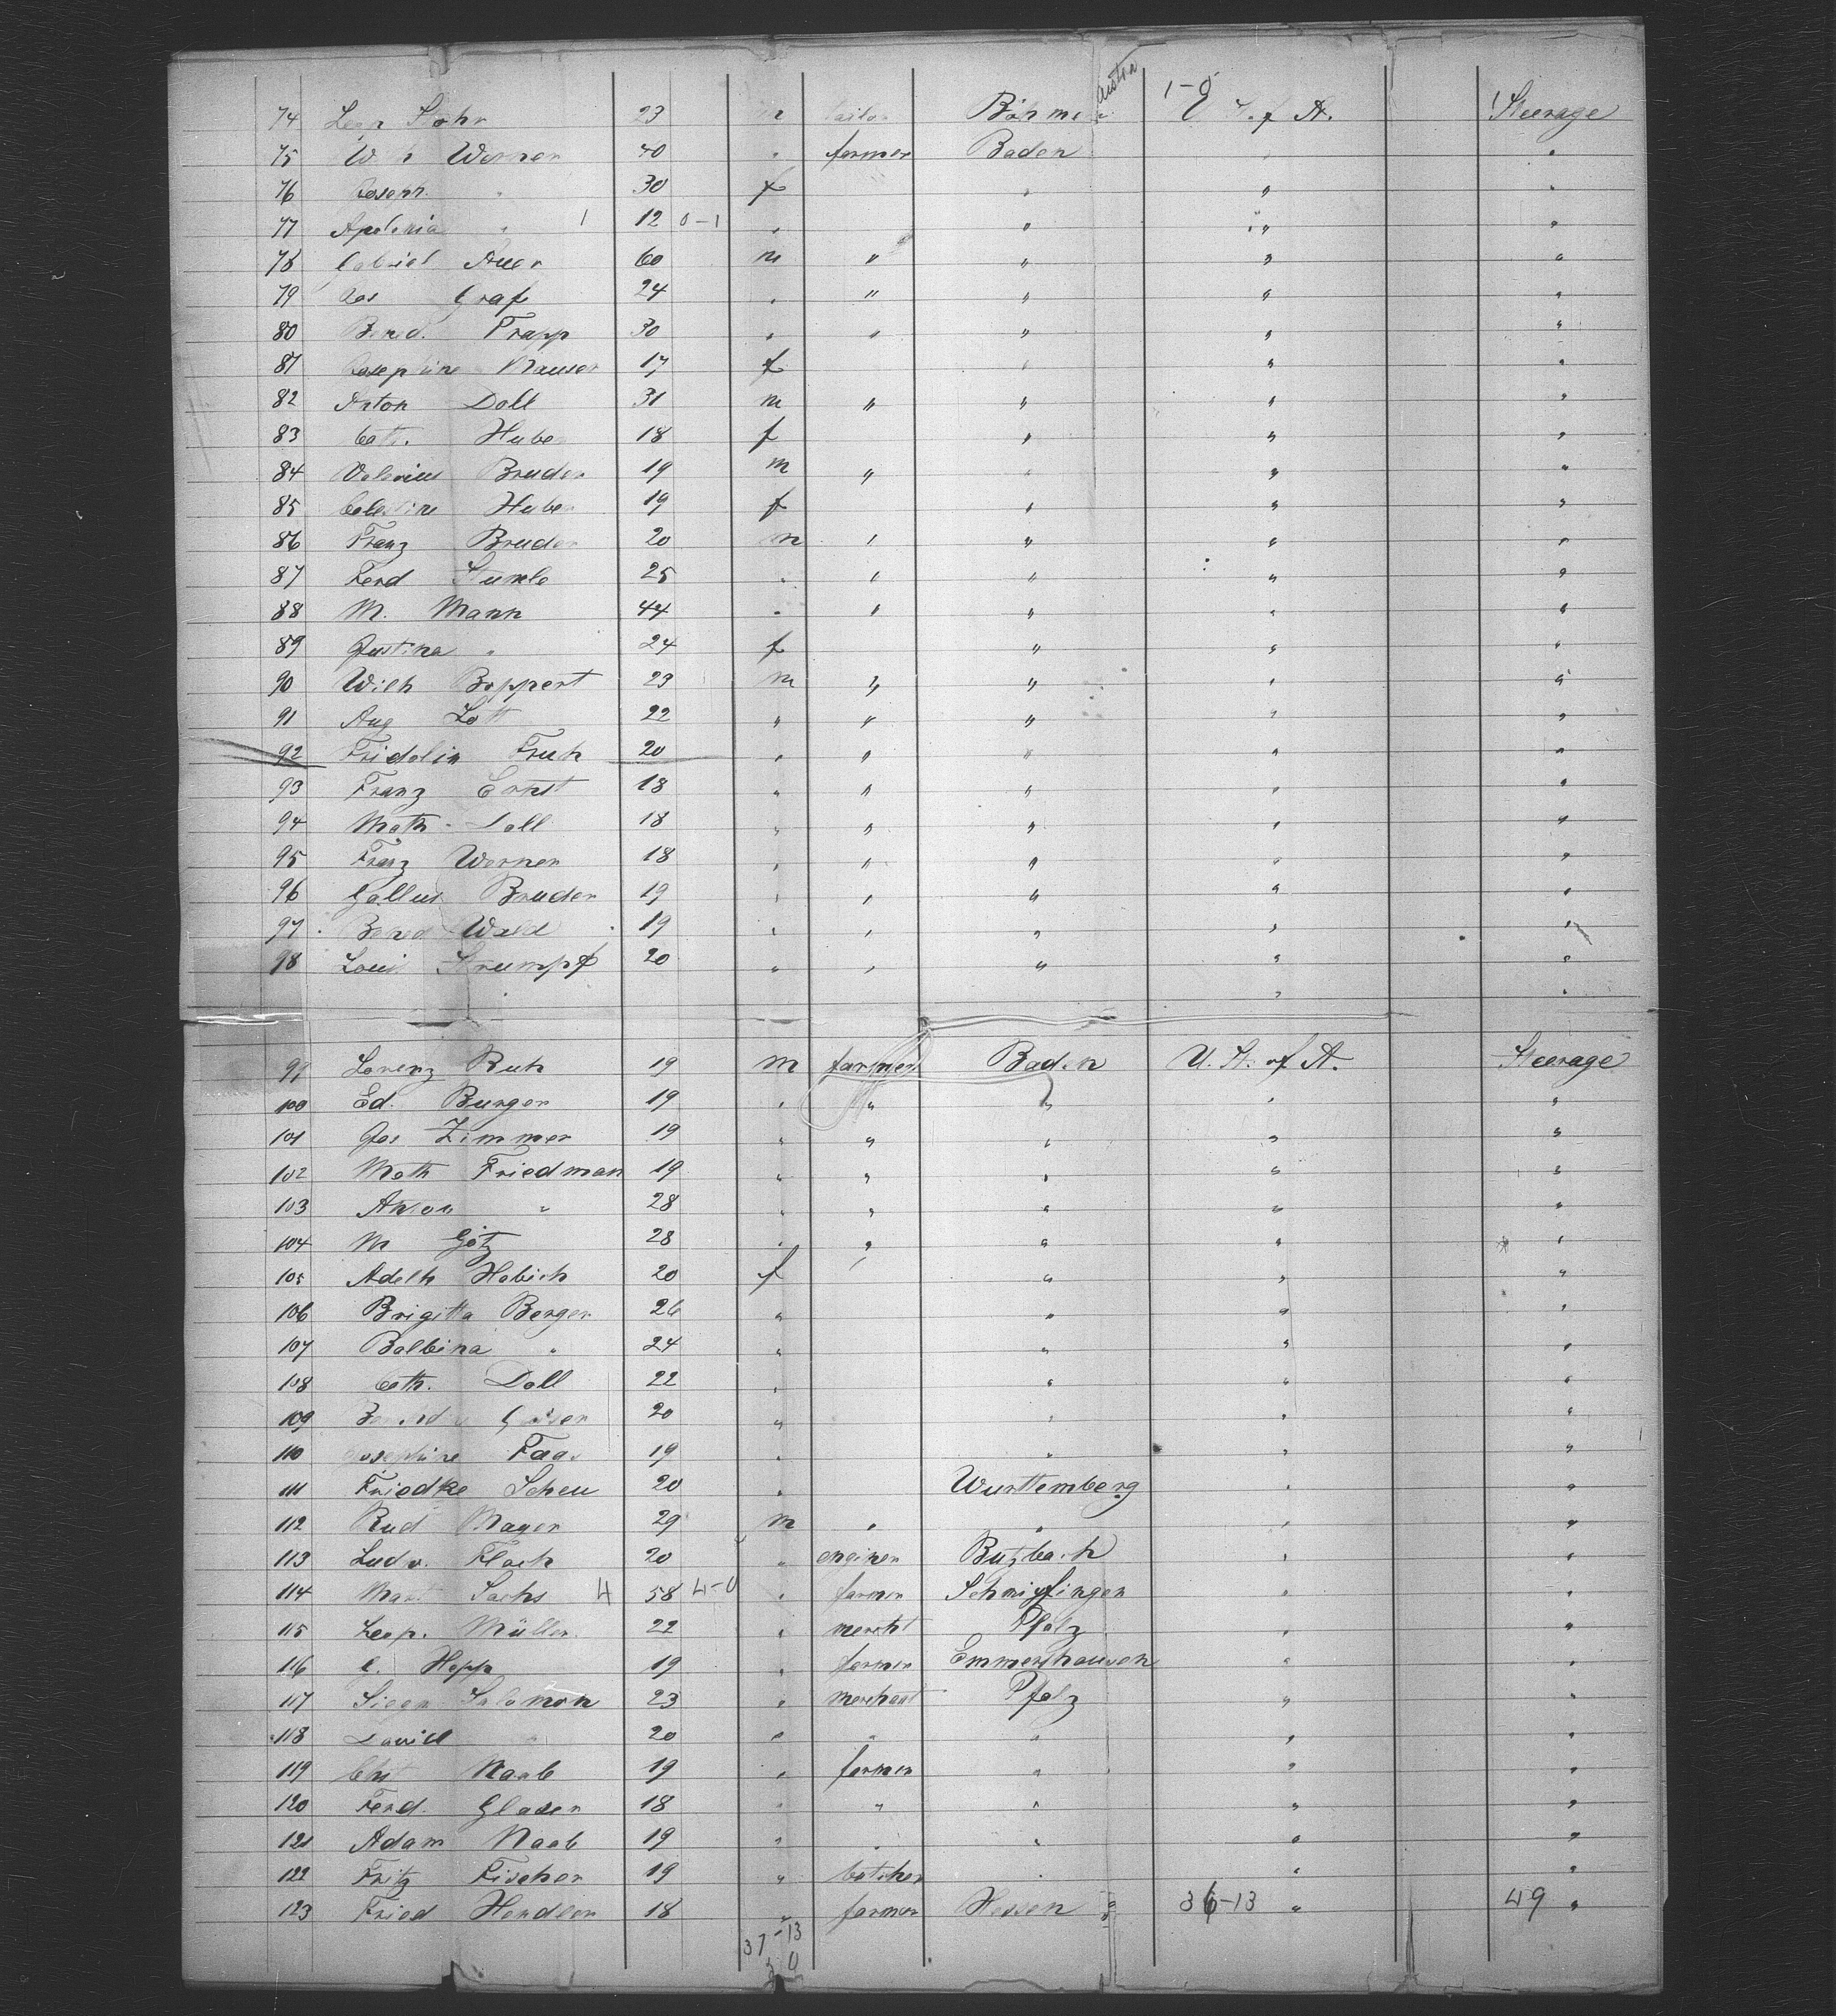 Austria 1-0
74 Leop Stohr 23 m tailor Böhme U St. of A. 1 Steerage
75 Wilh Werner 40 " farmer Baden " "
76 Joseph. " 30 f " " "
77 Apolonia " 1 12 0-1 " " " "
78 Gabriel Auer 60 m " " " "
79 Jos Graf 24 " " " " "
80 Bened. Trapp 30 " " " " "
81 Josephine Mauser 17 f " " "
82 Anton Doll 31 m " " " "
83 Cath. Huber 18 f " " "
84 Valerius Bruder 19 m " " " "
85 Celestine Huber 19 f " " "
86 Franz Bruder 20 m " " " "
87 Ferd 25 " " " " "
88 M. Mann 44 " " " " "
89 Justina " 24 f " " "
90 Wilh Boppert 23 m " " " "
91 Aug Lott 22 " " " " "
92 Fridolin Fruh 20 " " " " "
93 Franz Ernst 18 " " " " "
94 Math. Doll 18 " " " " "
95 Franz Werner 18 " " " " "
96 Gallus Bruder 19 " " " " "
97 Bened Wald 19 " " " " "
98 Loui Strumpf 20 " " " " "
" "
99 Lorenz Ruh 19 m farmer Baden U. St. of A. Steerage
100 Ed. Burger 19 " " " " "
101 Jos Zimmer 19 " " " " "
102 Math Friedman 19 " " " " "
103 Anton " 28 " " " " "
104 M Götz 28 " " " " "
105 Adelh Habich 20 f " " "
106 Brigitta Berger 26 " " " "
107 Balbina " 24 " " " "
108 Cath. Doll 22 " " " "
109 20 " " " "
110 Josephine Faas 19 " " " "
111 Friedke Scheu 20 " Wurttemberg " "
112 Rud Mayer 29 m " " " "
113 Ludw. Flach 20 " enginer Butzbach " "
114 Mart Sachs 4 58 4-0 " farmer " "
115 Leop. Müller 22 " mercht Pfalz " "
116 C. Hepp 19 " farmer Emmershausen " "
117 Sigm Salomon 23 " merchant Pfalz " "
118 David " 20 " " " " "
119 Chst Naab 19 " farmer " " "
120 Ferd. Glaser 18 " " " " "
121 Adam Naab 19 " " " " "
122 Fritz Fischer 19 " butcher " " "
123 Fried Hendler 18 " farmer Hessen " 36-13 " 49 "
37-13